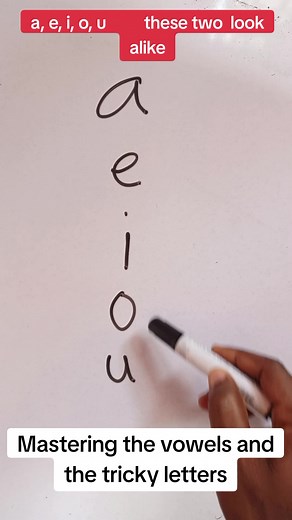 a, e, i, o, u these two look
alike
a
e
i
o
u
Mastering the vowels and
the tricky letters